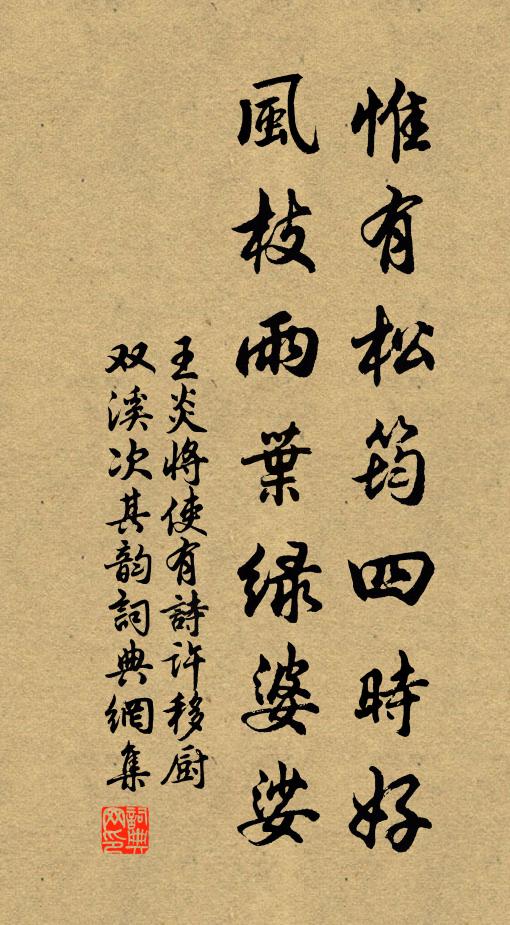 惟有松筠四時好
風枝雨葉绿婆娑
王炎將使有詩許移厨
双溪次其韵詞典網集
詞典網印